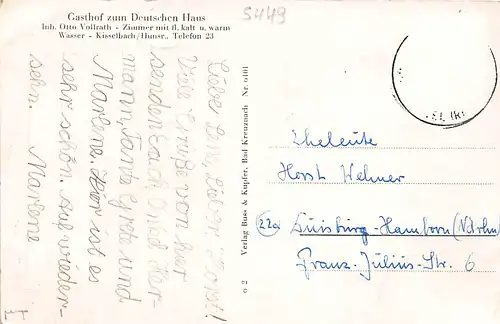 Gasthof zum Deutschen Haus
Inh. Otto Vollrath - Zimmer mit fl. kalt u. warm
Wasser - Kisselbach/Hunsr., Telefon 23
5449
Liebe Lene, Lieber Horst!
Viele Grüße von hier
senden Euch, Onkel Her-
mann, Tante Grete und
Marlene. Hier ist es
sehr schön. Auf wieder-
sehn. Marlene
Verlag Buss & Kupfer, Bad Kreuznach Nr. 6101
o 2
Eheleute
Horst Welmer
22a Duisburg-Hamborn (Ndrhn
Franz-Julius-Str. 6